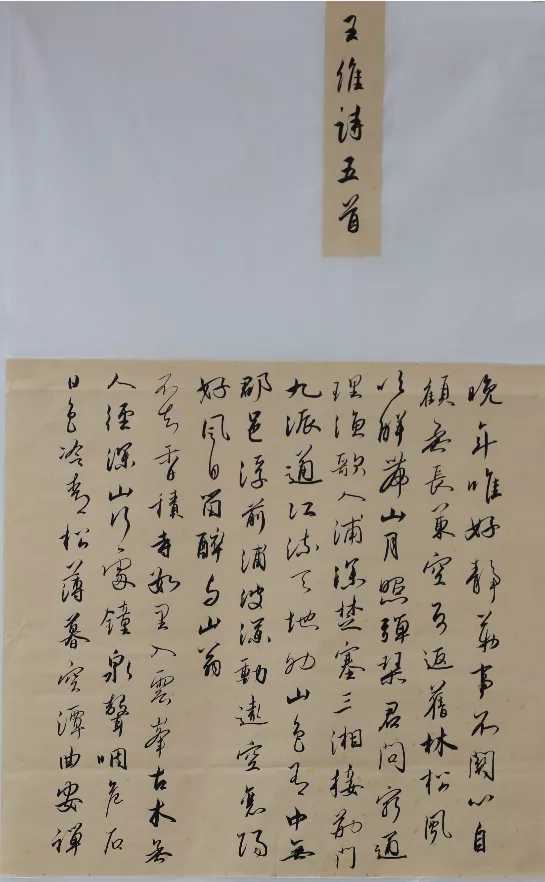 王維詩五首
晚年唯好靜萬事不關心自
顧無長策空知返舊林松風
吹解帶山月照彈琴君問窮通
理漁歌入浦深楚塞三湘接荊門
九派通江流天地外山色有中無
郡邑浮前浦波瀾動遠空襄陽
好風日留醉與山翁
不知香積寺數里入雲峯古木無
人徑深山何處鐘泉聲咽危石
日色冷青松薄暮空潭曲安禪